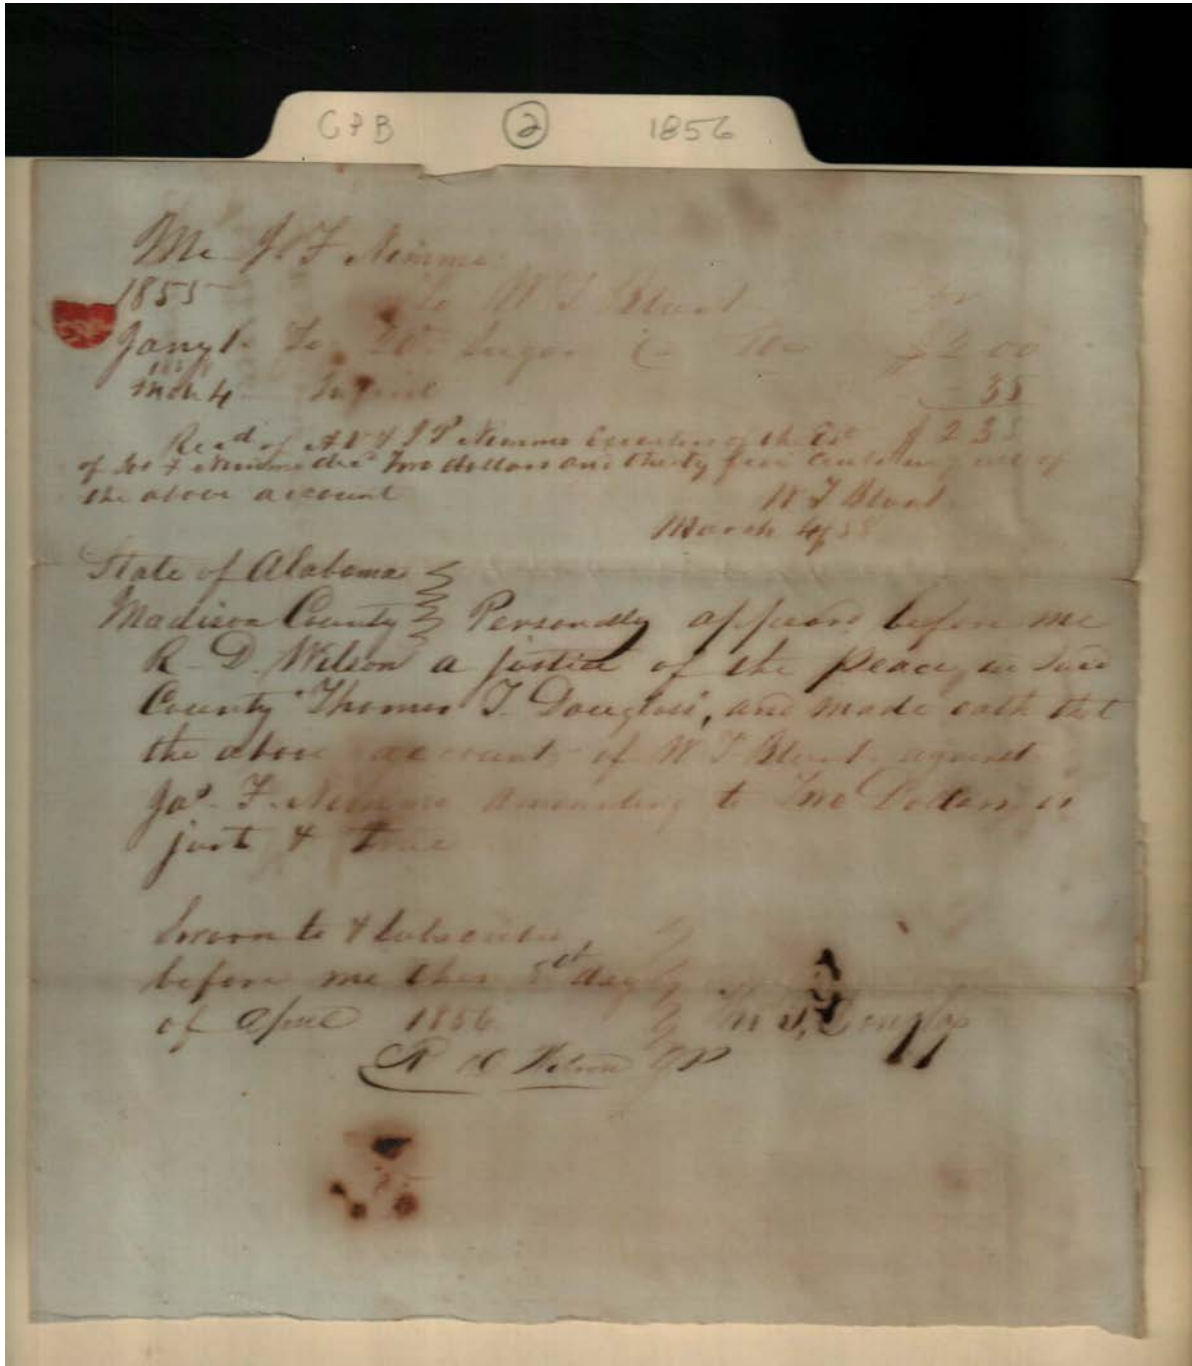 CPB 2 1856
Mr J F Nimmo
1855 To W T Blunt Dr
Jany 1 To 20 Sugar $2 00
1858
Mch 4 Interest 35
Recd of A V & J P Nimmo Executors of the Est $2 35
of Jos F Nimmo decd Two dollars and thirty five cents in of
the above account
W T Blunt
March 4/58
State of Alabama
Madison County Personally appeard before me
R D Wilson a justice of the peace in said
County Thomas T. Douglass, and made oath that
the above account of W T Blunt against
Jas. F. Nimmo amounting to Two Dollars is
just & true
Sworn to & subscribed
before me this day
of April 1856
T. Douglass
R D Wilson JP